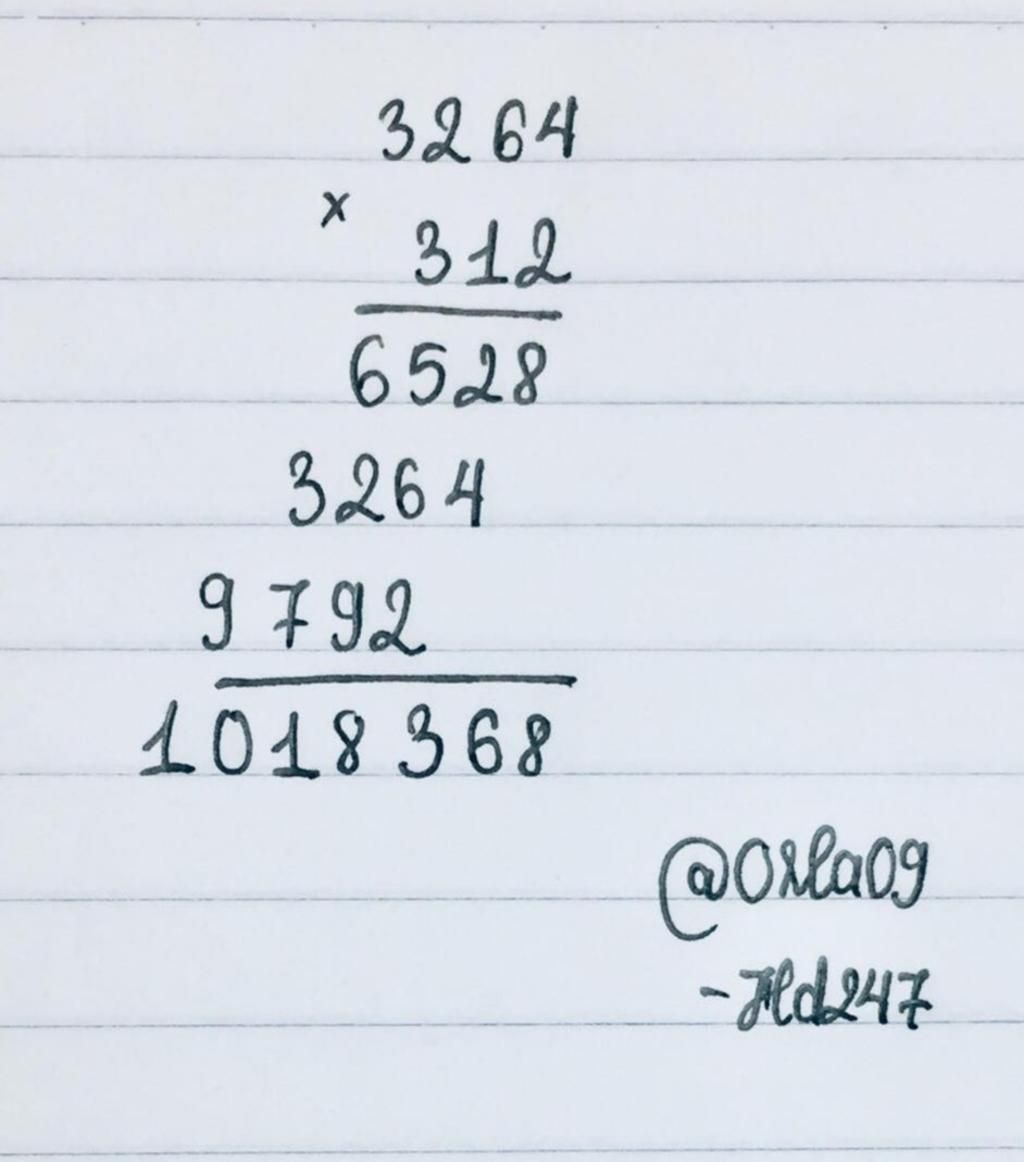 3264
x
312
6528
3264
9792
1018368
@Orla09
-Hd247